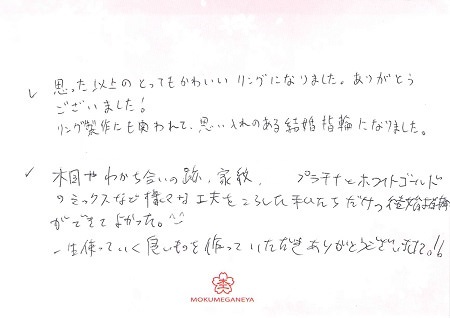 ✓ 思った以上のとってもかわいい リングになりました。ありがとう
ございました！
リング製作にも関われて、思い入れのある結婚指輪になりました。
✓ 木目やわかち合いの跡、家紋、 プラチナとホワイトゴールド
のミックスなど様々な工夫をこらした私たちだけの結婚指輪
ができてよかった。
一生使っていく良いものを作っていただきありがとうございました。!!
MOKUMEGANEYA